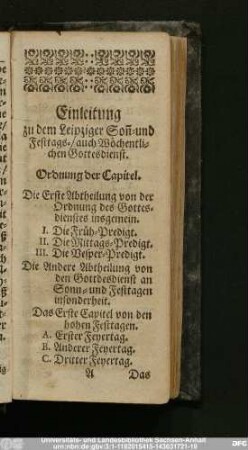 Einleitung
zu dem Leipziger Soñ-und
Festtags-/auch Wöchentli-
chen Gottesdienst.
Ordnung der Capitel.
Die Erste Abtheilung von der
Ordnung des Gottes-
dienstes insgemein.
I. Die Früh-Predigt.
II. Die Mittags-Predigt.
III. Die Vesper-Predigt.
Die Andere Abtheilung von
den Gottesdienst an
Sonn-und Festtagen
insonderheit.
Das Erste Capitel von den
hohen Festtagen.
A. Erster Feyertag.
B. Anderer Feyertag.
C. Dritter Feyertag.
A Das
Universitäts- und Landesbibliothek Sachsen-Anhalt